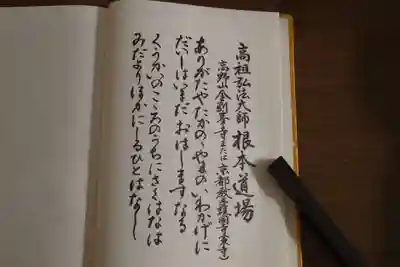 高祖弘法大師 根本道場
高野山金剛峯寺または(京都教王護国寺東寺)
ありがたやたかのゝやまの、いわかげに
だいしはいまだおはしますなる
くうかいのこゝろのうちにさくはなは
みだよりほかにしるひとはなし